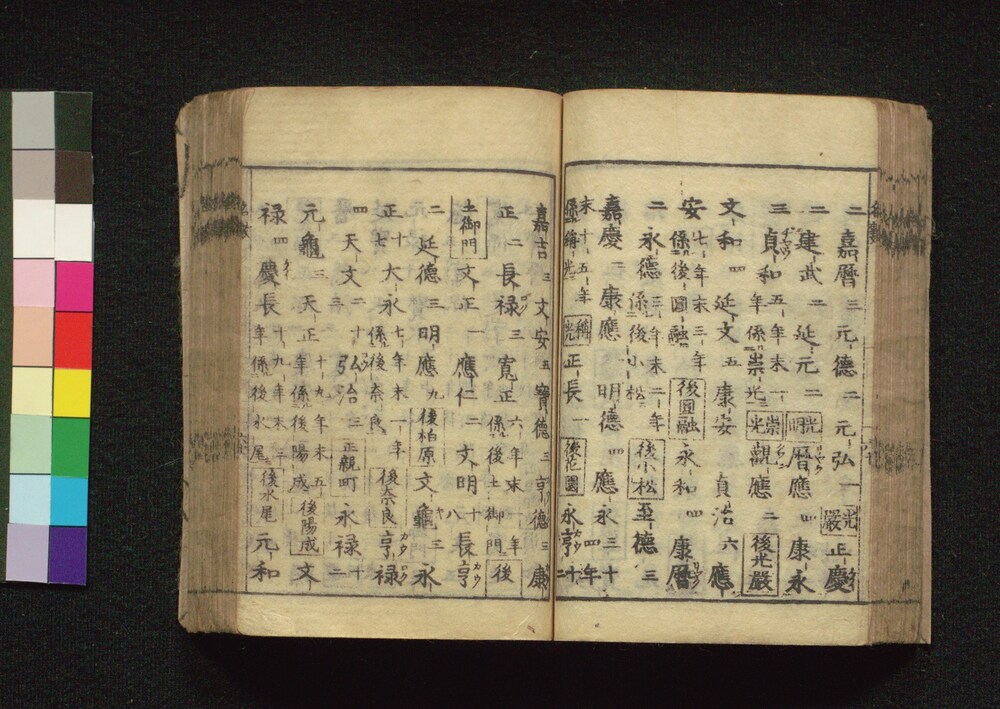 二嘉暦三元徳二元弘一光嚴正慶
二建武二延元二光明暦應四康永
三貞和五年末一年係崇光崇光觀應二後光嚴
文和四延文五康安一貞治六應
安七年末三年係後圓融後圓融永和四康暦
二永徳三年末二年係後小松後小松至徳三
嘉慶二康應一明徳四應永三十四年
末十五年係稱光稱光正長一後花園永亨十二
嘉吉三文安五寳徳三亨徳三康
正二長禄三寛正六年末一年係後土御門後
土御門文正一應仁二文明十八長亨
二延徳三明應九後柏原文龜三永
正十七大永七年末一年係後奈良後奈良亨禄
四天文二十三弘治三正親町永禄十二
元龜三天正十九年末五年係後陽成後陽成文
禄四慶長十九年末三年係後水尾後水尾元和